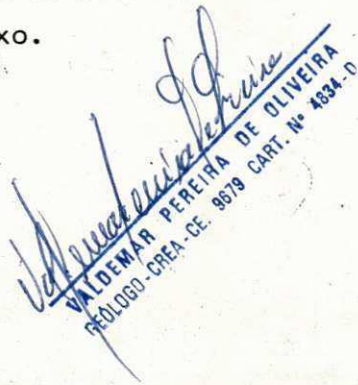 xo.
VALDEMAR PEREIRA DE OLIVEIRA
GEÓLOGO-CREA-CE. 9679 CART. Nº 4834-D